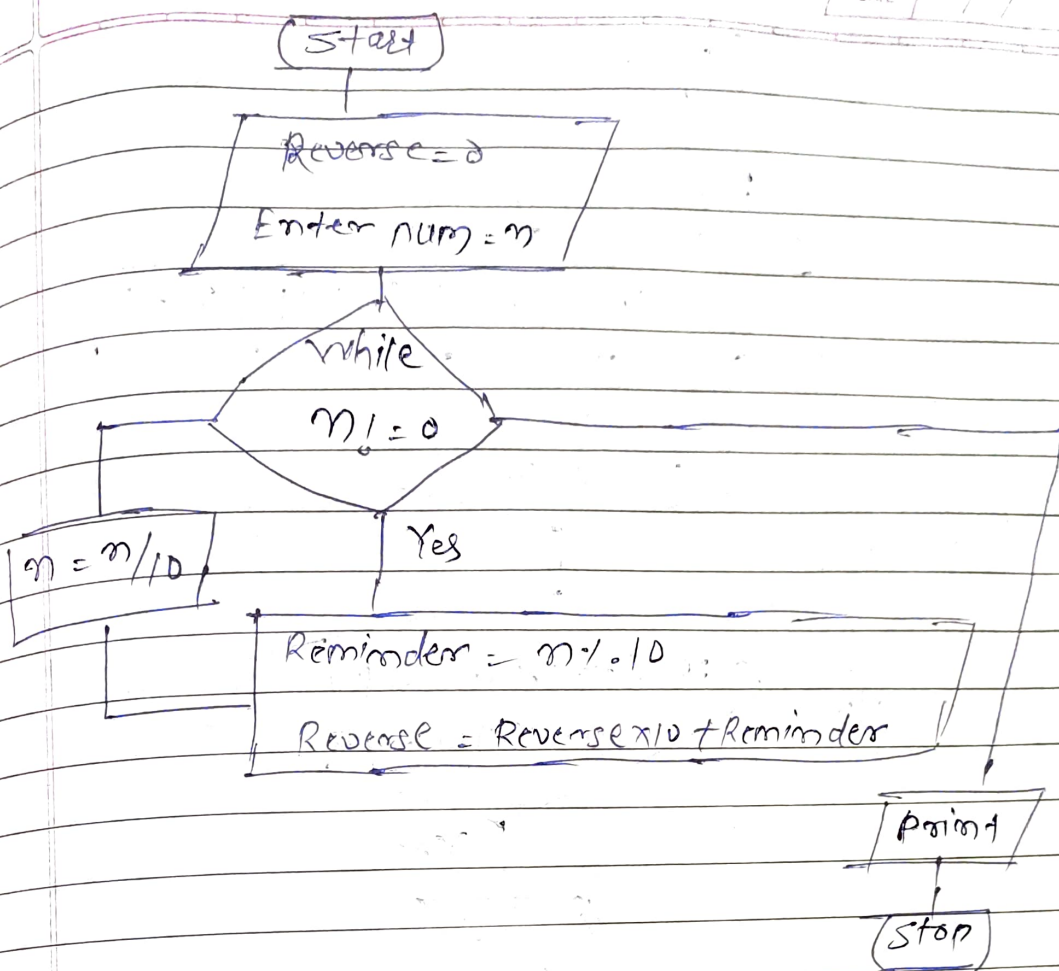 Start
Reverse = 0
Enter num = n
While
n! = 0
Yes
n = n/10
Reminder = n % 10
Reverse = Reverse x 10 + Reminder
Print
Stop